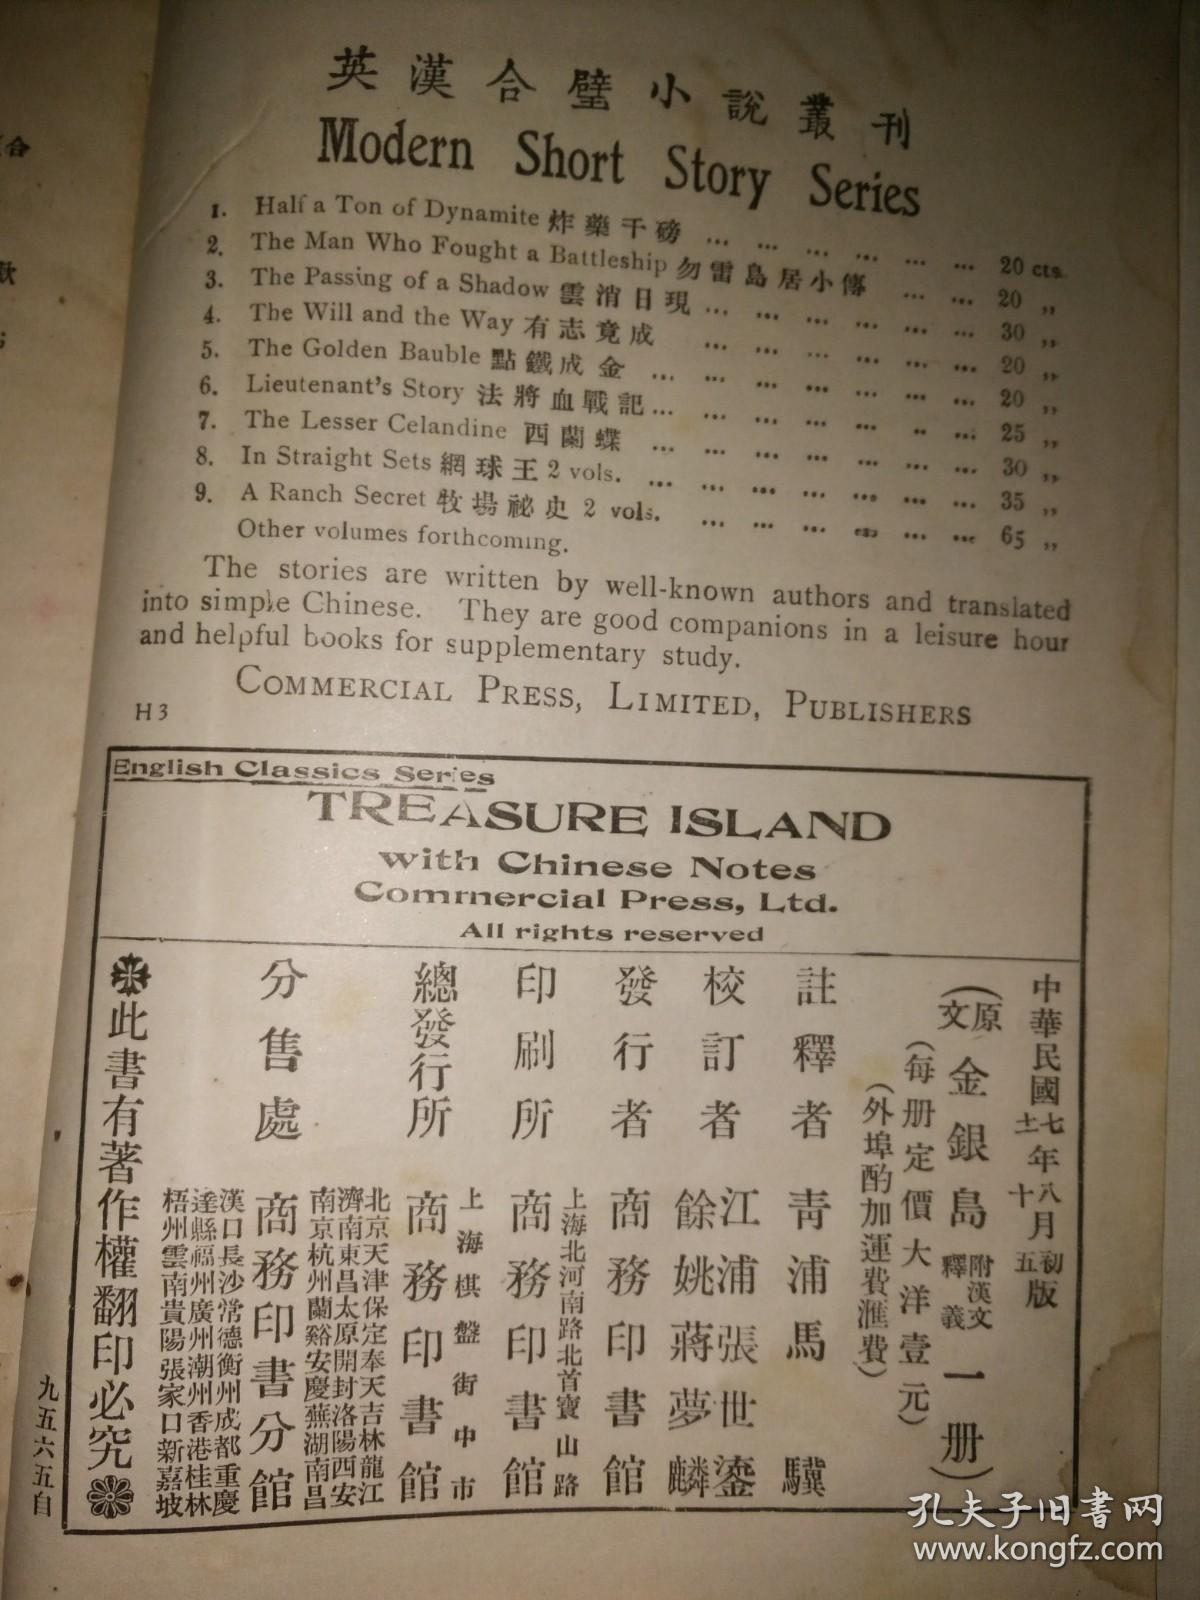 英漢合璧小說叢刊
Modern Short Story Series
1. Half a Ton of Dynamite 炸藥千磅 ... ... ... ... ... ... 20 cts.
2. The Man Who Fought a Battleship 勿雷島居小傳 ... ... 20 ,,
3. The Passing of a Shadow 雲消日現 ... ... ... ... ... ... 30 ,,
4. The Will and the Way 有志竟成 ... ... ... ... ... ... 20 ,,
5. The Golden Bauble 點鐵成金 ... ... ... ... ... ... ... 20 ,,
6. Lieutenant's Story 法將血戰記 ... ... ... ... ... .. ... 25 ,,
7. The Lesser Celandine 西蘭蝶 ... ... ... ... ... ... ... 30 ,,
8. In Straight Sets 網球王 2 vols. ... ... ... ... ... ... ... 35 ,,
9. A Ranch Secret 牧場祕史 2 vols. ... ... ... ... ... ... 65 ,,
Other volumes forthcoming.
The stories are written by well-known authors and translated
into simple Chinese. They are good companions in a leisure hour
and helpful books for supplementary study.
COMMERCIAL PRESS, LIMITED, PUBLISHERS
H 3
English Classics Series
TREASURE ISLAND
with Chinese Notes
Commercial Press, Ltd.
All rights reserved
中華民國七年八月初版
十五
(原文金銀島附漢文釋義一册)
(每册定價大洋壹元)
(外埠酌加運費滙費)
註釋者 青浦馬驥
校訂者 江浦張世鎏
餘姚蔣夢麟
發行者 商務印書館
印刷所 上海北河南路北首寶山路
商務印書館
總發行所 上海棋盤街中市
商務印書館
分售處 北京天津保定奉天吉林龍江
濟南東昌太原開封洛陽西安
南京杭州蘭谿安慶蕪湖南昌
商務印書分館
漢口長沙常德衡州成都重慶
達縣福州廣州潮州香港桂林
梧州雲南貴陽張家口新嘉坡
此書有著作權翻印必究
九五六五自
孔夫子旧书网
www.kongfz.com